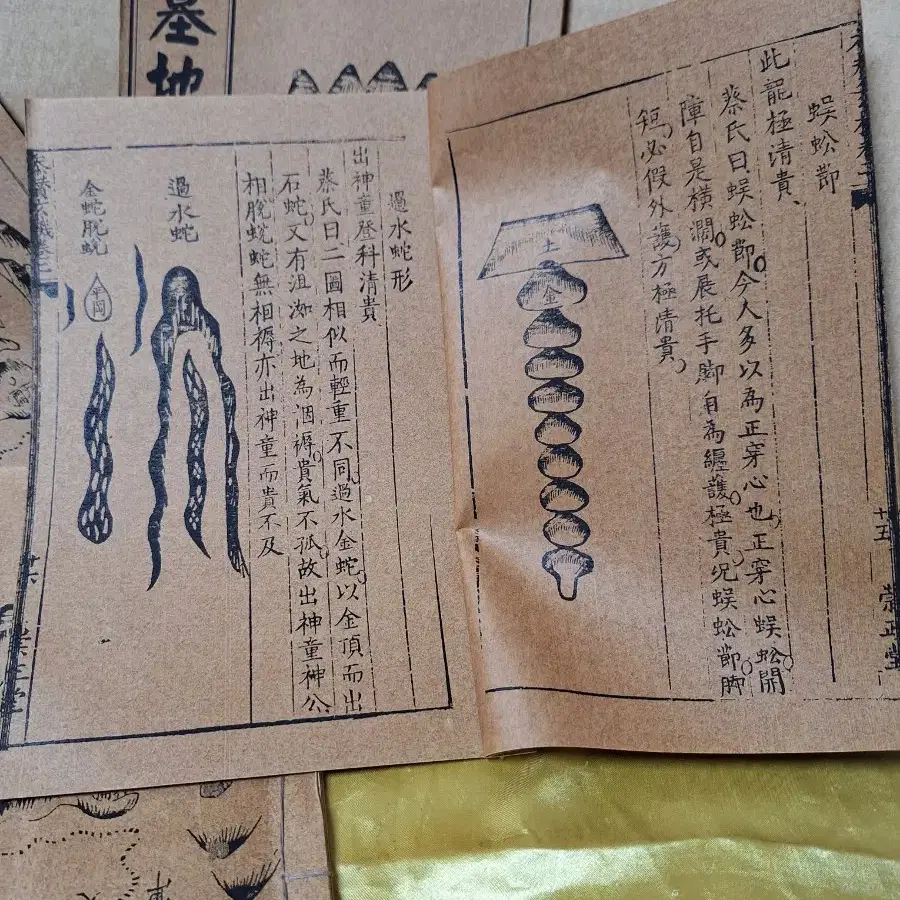 墓地
蜈蚣節
此龍極清貴
蔡氏曰蜈蚣節今人多以為正穿心也正穿心蜈蚣開
障自是橫濶或展托手脚自為纏護極貴况蜈蚣節脚
短必假外護方極清貴
土
金
十五
崇正堂
過水蛇形
出神童登科清貴
蔡氏曰二圖相似而輕重不同過水金蛇以金頂而出
石蛇又有沮洳之地為洇褥貴氣不孤故出神童神公
相脫蜕蛇無相褥亦出神童而貴不及
過水蛇
金蛇脫蜕